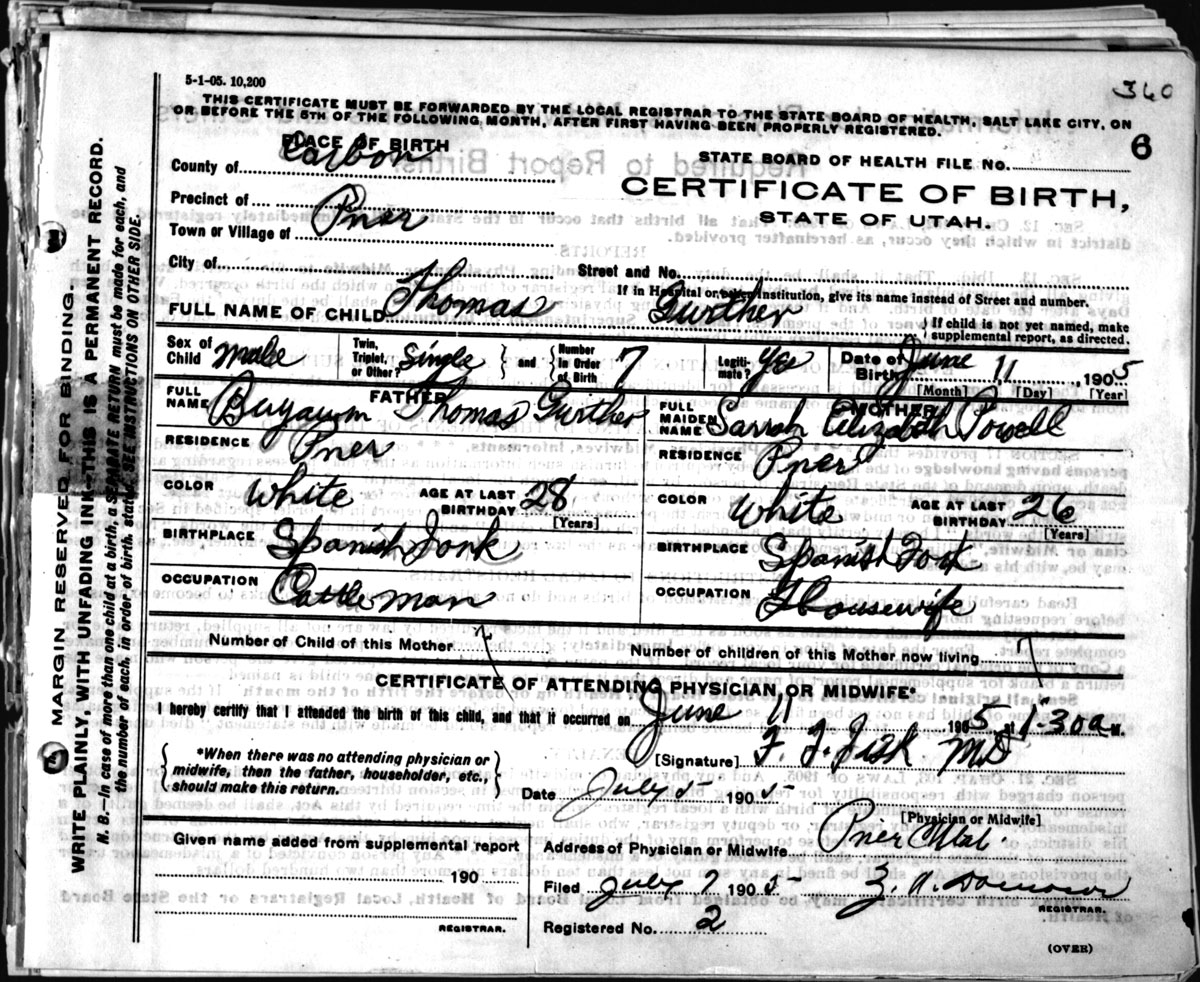 5-1-05. 10,200
360
THIS CERTIFICATE MUST BE FORWARDED BY THE LOCAL REGISTRAR TO THE STATE BOARD OF HEALTH, SALT LAKE CITY, ON
OR BEFORE THE 5TH OF THE FOLLOWING MONTH, AFTER FIRST HAVING BEEN PROPERLY REGISTERED.
6
PLACE OF BIRTH
County of Carbon
Precinct of
Town or Village of
City of
STATE BOARD OF HEALTH FILE No.
CERTIFICATE OF BIRTH,
STATE OF UTAH.
Street and No.
If in Hospital or other Institution, give its name instead of Street and number.
FULL NAME OF CHILD Thomas Gurther
If child is not yet named, make
supplemental report, as directed.
Sex of Child Male
Twin, Triplet, or Other? Single and Number in Order of Birth 7
Legitimate? Yes
Date of Birth June 11, 1905
[Month] [Day] [Year]
FATHER
FULL NAME Thomas Gurther
RESIDENCE
COLOR White AGE AT LAST BIRTHDAY 28
[Years]
BIRTHPLACE Spanish Fork
OCCUPATION Cattle Man
MOTHER
FULL MAIDEN NAME Sarrah Elizabeth Powell
RESIDENCE
COLOR White AGE AT LAST BIRTHDAY 26
[Years]
BIRTHPLACE Spanish Fork
OCCUPATION Housewife
Number of Child of this Mother 7
Number of children of this Mother now living 7
CERTIFICATE OF ATTENDING PHYSICIAN OR MIDWIFE*
I hereby certify that I attended the birth of this child, and that it occurred on June 11 1905, at 1-30 a M.
*When there was no attending physician or
midwife, then the father, householder, etc.,
should make this return.
[Signature] F. F. Fisk MD
Date July 5 1905
[Physician or Midwife]
Given name added from supplemental report
190
REGISTRAR.
Address of Physician or Midwife Utah.
Filed July 7 1905
REGISTRAR.
Registered No. 2
(OVER)
MARGIN RESERVED FOR BINDING.
WRITE PLAINLY, WITH UNFADING INK—THIS IS A PERMANENT RECORD.
N. B.—In case of more than one child at a birth, a SEPARATE RETURN must be made for each, and
the number of each, in order of birth, stated. SEE INSTRUCTIONS ON OTHER SIDE.